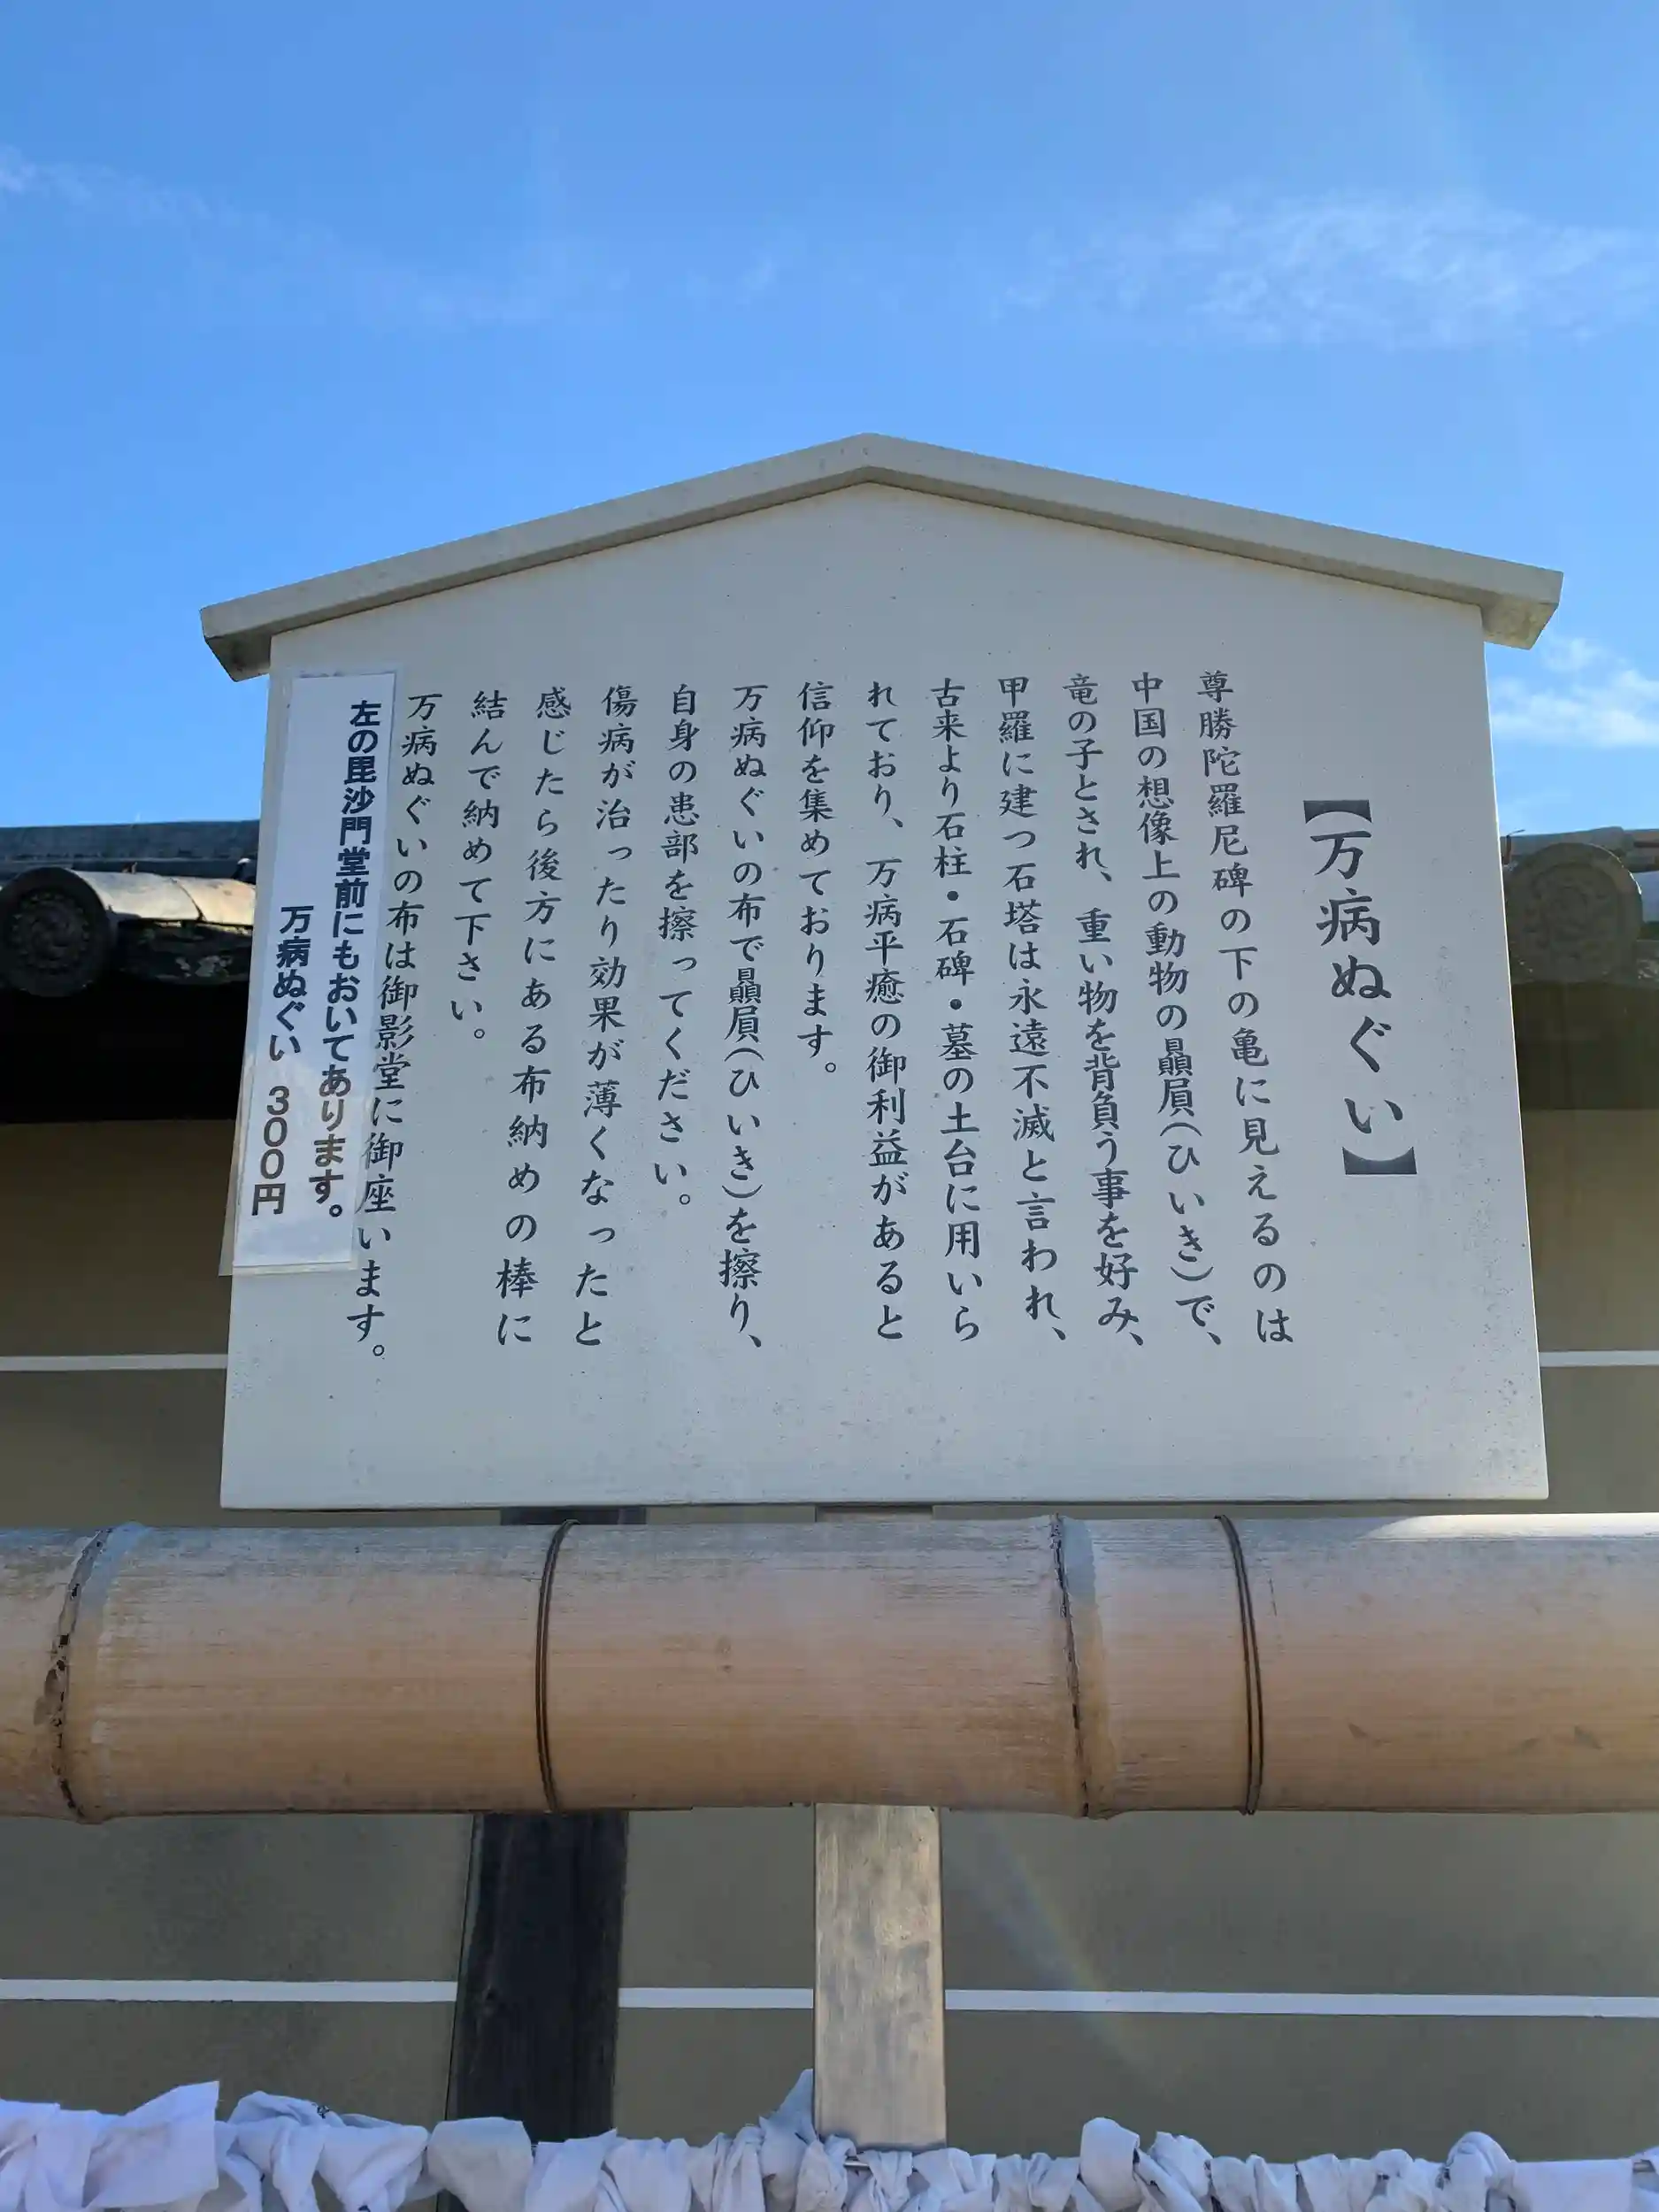 【万病ぬぐい】
尊勝陀羅尼碑の下の亀に見えるのは
中国の想像上の動物の贔屓(ひいき)で、
竜の子とされ、重い物を背負う事を好み、
甲羅に建つ石塔は永遠不滅と言われ、
古来より石柱・石碑・墓の土台に用いら
れており、万病平癒の御利益があると
信仰を集めております。
万病ぬぐいの布で贔屓(ひいき)を擦り、
自身の患部を擦ってください。
傷病が治ったり効果が薄くなったと
感じたら後方にある布納めの棒に
結んで納めて下さい。
万病ぬぐいの布は御影堂に御座います。
左の毘沙門堂前にもおいてあります。
万病ぬぐい 300円